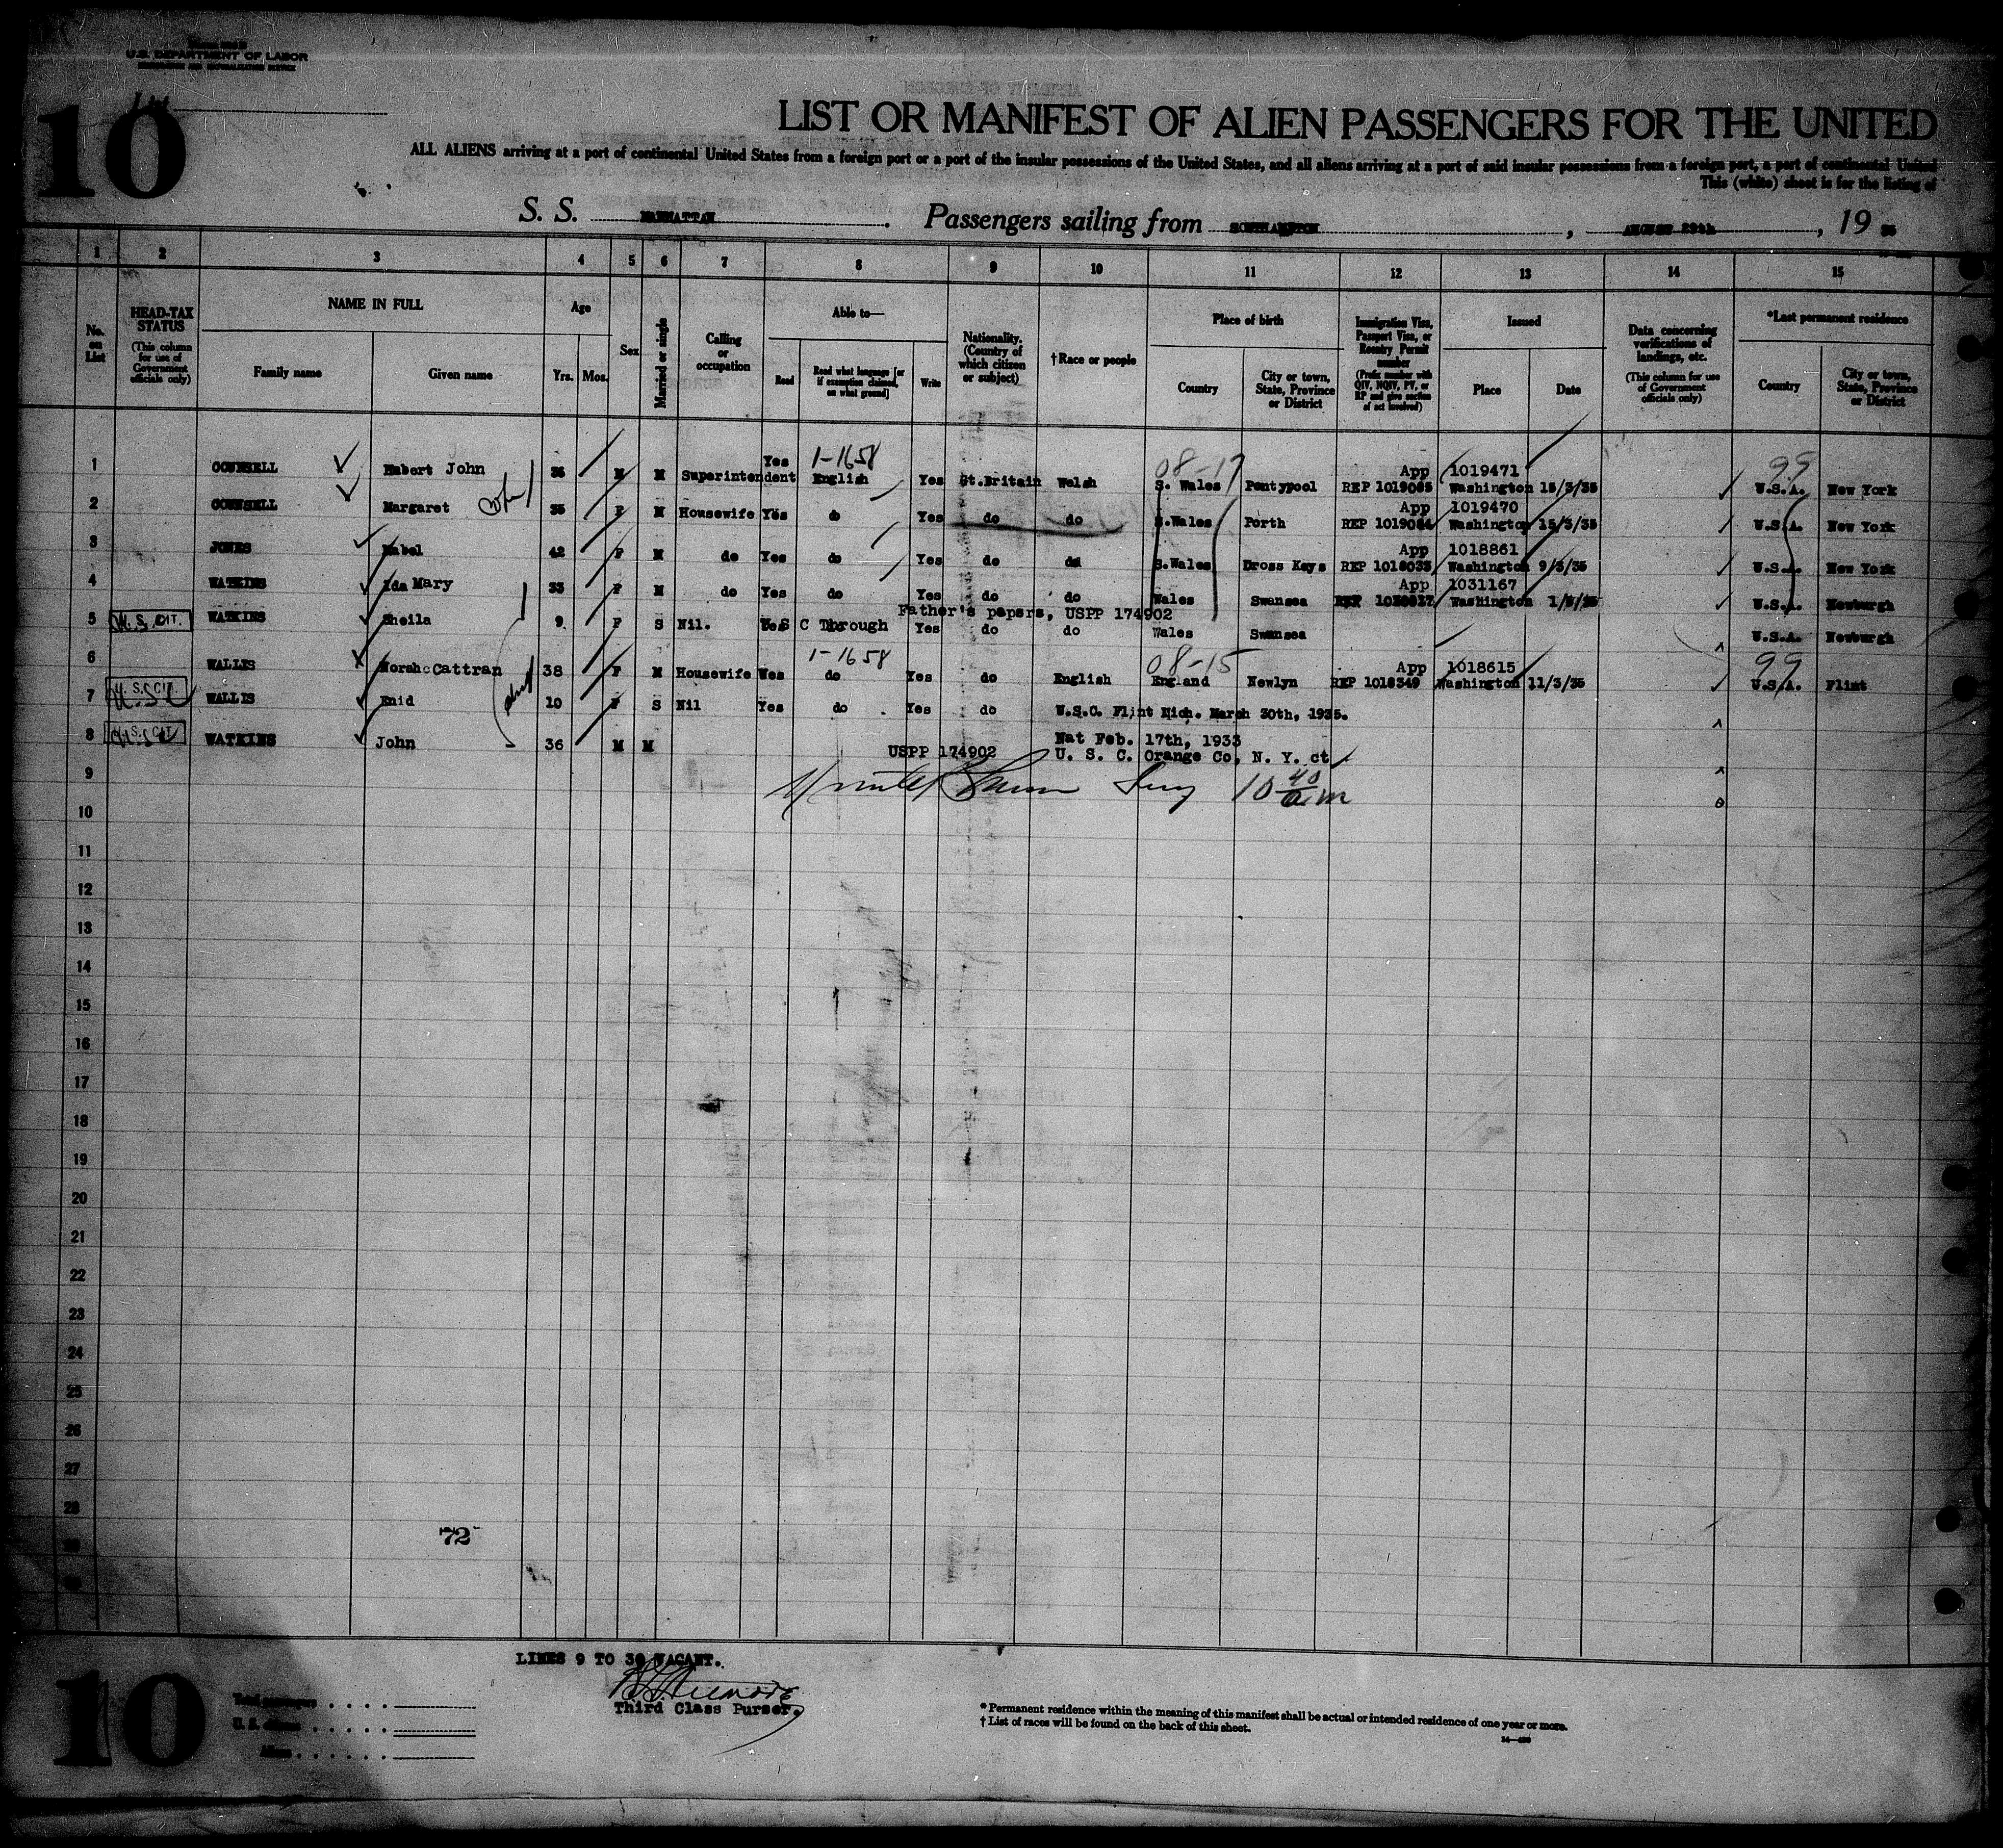 U.S. DEPARTMENT OF LABOR
10
LIST OR MANIFEST OF ALIEN PASSENGERS FOR THE UNITED
ALL ALIENS arriving at a port of continental United States from a foreign port or a port of the insular possessions of the United States, and all aliens arriving at a port of said insular possessions from a foreign port, a port of continental United
This (white) sheet is for the listing of
S. S. MANHATTAN. Passengers sailing from SOUTHAMPTON, AUGUST 29th, 19 35
1 2 3 4 5 6 7 8 9 10 11 12 13 14 15
No. on List
HEAD-TAX STATUS
(This column for use of Government officials only)
NAME IN FULL
Family name
Given name
Age
Yrs. Mos.
Sex
Married or single
Calling or occupation
Able to—
Read
Read what language [or if exemption claimed, on what ground]
Write
Nationality. (Country of which citizen or subject)
†Race or people
Place of birth
Country
City or town, State, Province or District
Immigration Visa, Passport Visa, or Reentry Permit number
(Prefix number with QIV, NQIV, PV, or RP and give section of act involved)
Issued
Place
Date
Data concerning verifications of landings, etc.
(This column for use of Government officials only)
*Last permanent residence
Country
City or town, State, Province or District
1-1658 08-17 99
1 COUNSELL John 36 M M Superintendent Yes English Yes Gt.Britain Welsh S. Wales Pontypool App 1019471 REP 1019065 Washington 15/3/35 U.S.A. New York
2 COUNSELL Margaret 35 F M Housewife Yes do Yes do do S.Wales Porth App 1019470 REP 1019064 Washington 15/3/35 U.S.A. New York
3 JONES Mabel 42 F M do Yes do Yes do do S.Wales Cross Keys App 1018861 REP 1018033 Washington 9/3/35 U.S.A. New York
4 WATKINS Ida Mary 33 F M do Yes do Yes do do Wales Swansea App 1031167 REP Washington U.S.A. Newburgh
Father's papers, USPP 174902
5 U. S. CIT. WATKINS Sheila 9 F S Nil. U S C Through Yes do do Wales Swansea U.S.A. Newburgh
1-1658 08-15 99
6 WALLIS Norah Cattran 38 F M Housewife Yes do Yes do English England Newlyn App 1018615 REP 1018349 Washington 11/3/35 U.S.A. Flint
7 U. S. CIT. WALLIS Enid 10 F S Nil Yes do Yes do U.S.C. Flint Mich. March 30th, 1925.
8 U. S. CIT. WATKINS John 36 M M USPP 174902 Nat Feb. 17th, 1933
U. S. C. Orange Co, N. Y. ct
9
10 40 a.m
10
11
12
13
14
15
16
17
18
19
20
21
22
23
24
25
26
27
28
72
LINES 9 TO 30 VACANT.
Third Class Purser.
10
Total passengers
U. S. citizens
Aliens
* Permanent residence within the meaning of this manifest shall be actual or intended residence of one year or more.
† List of races will be found on the back of this sheet.